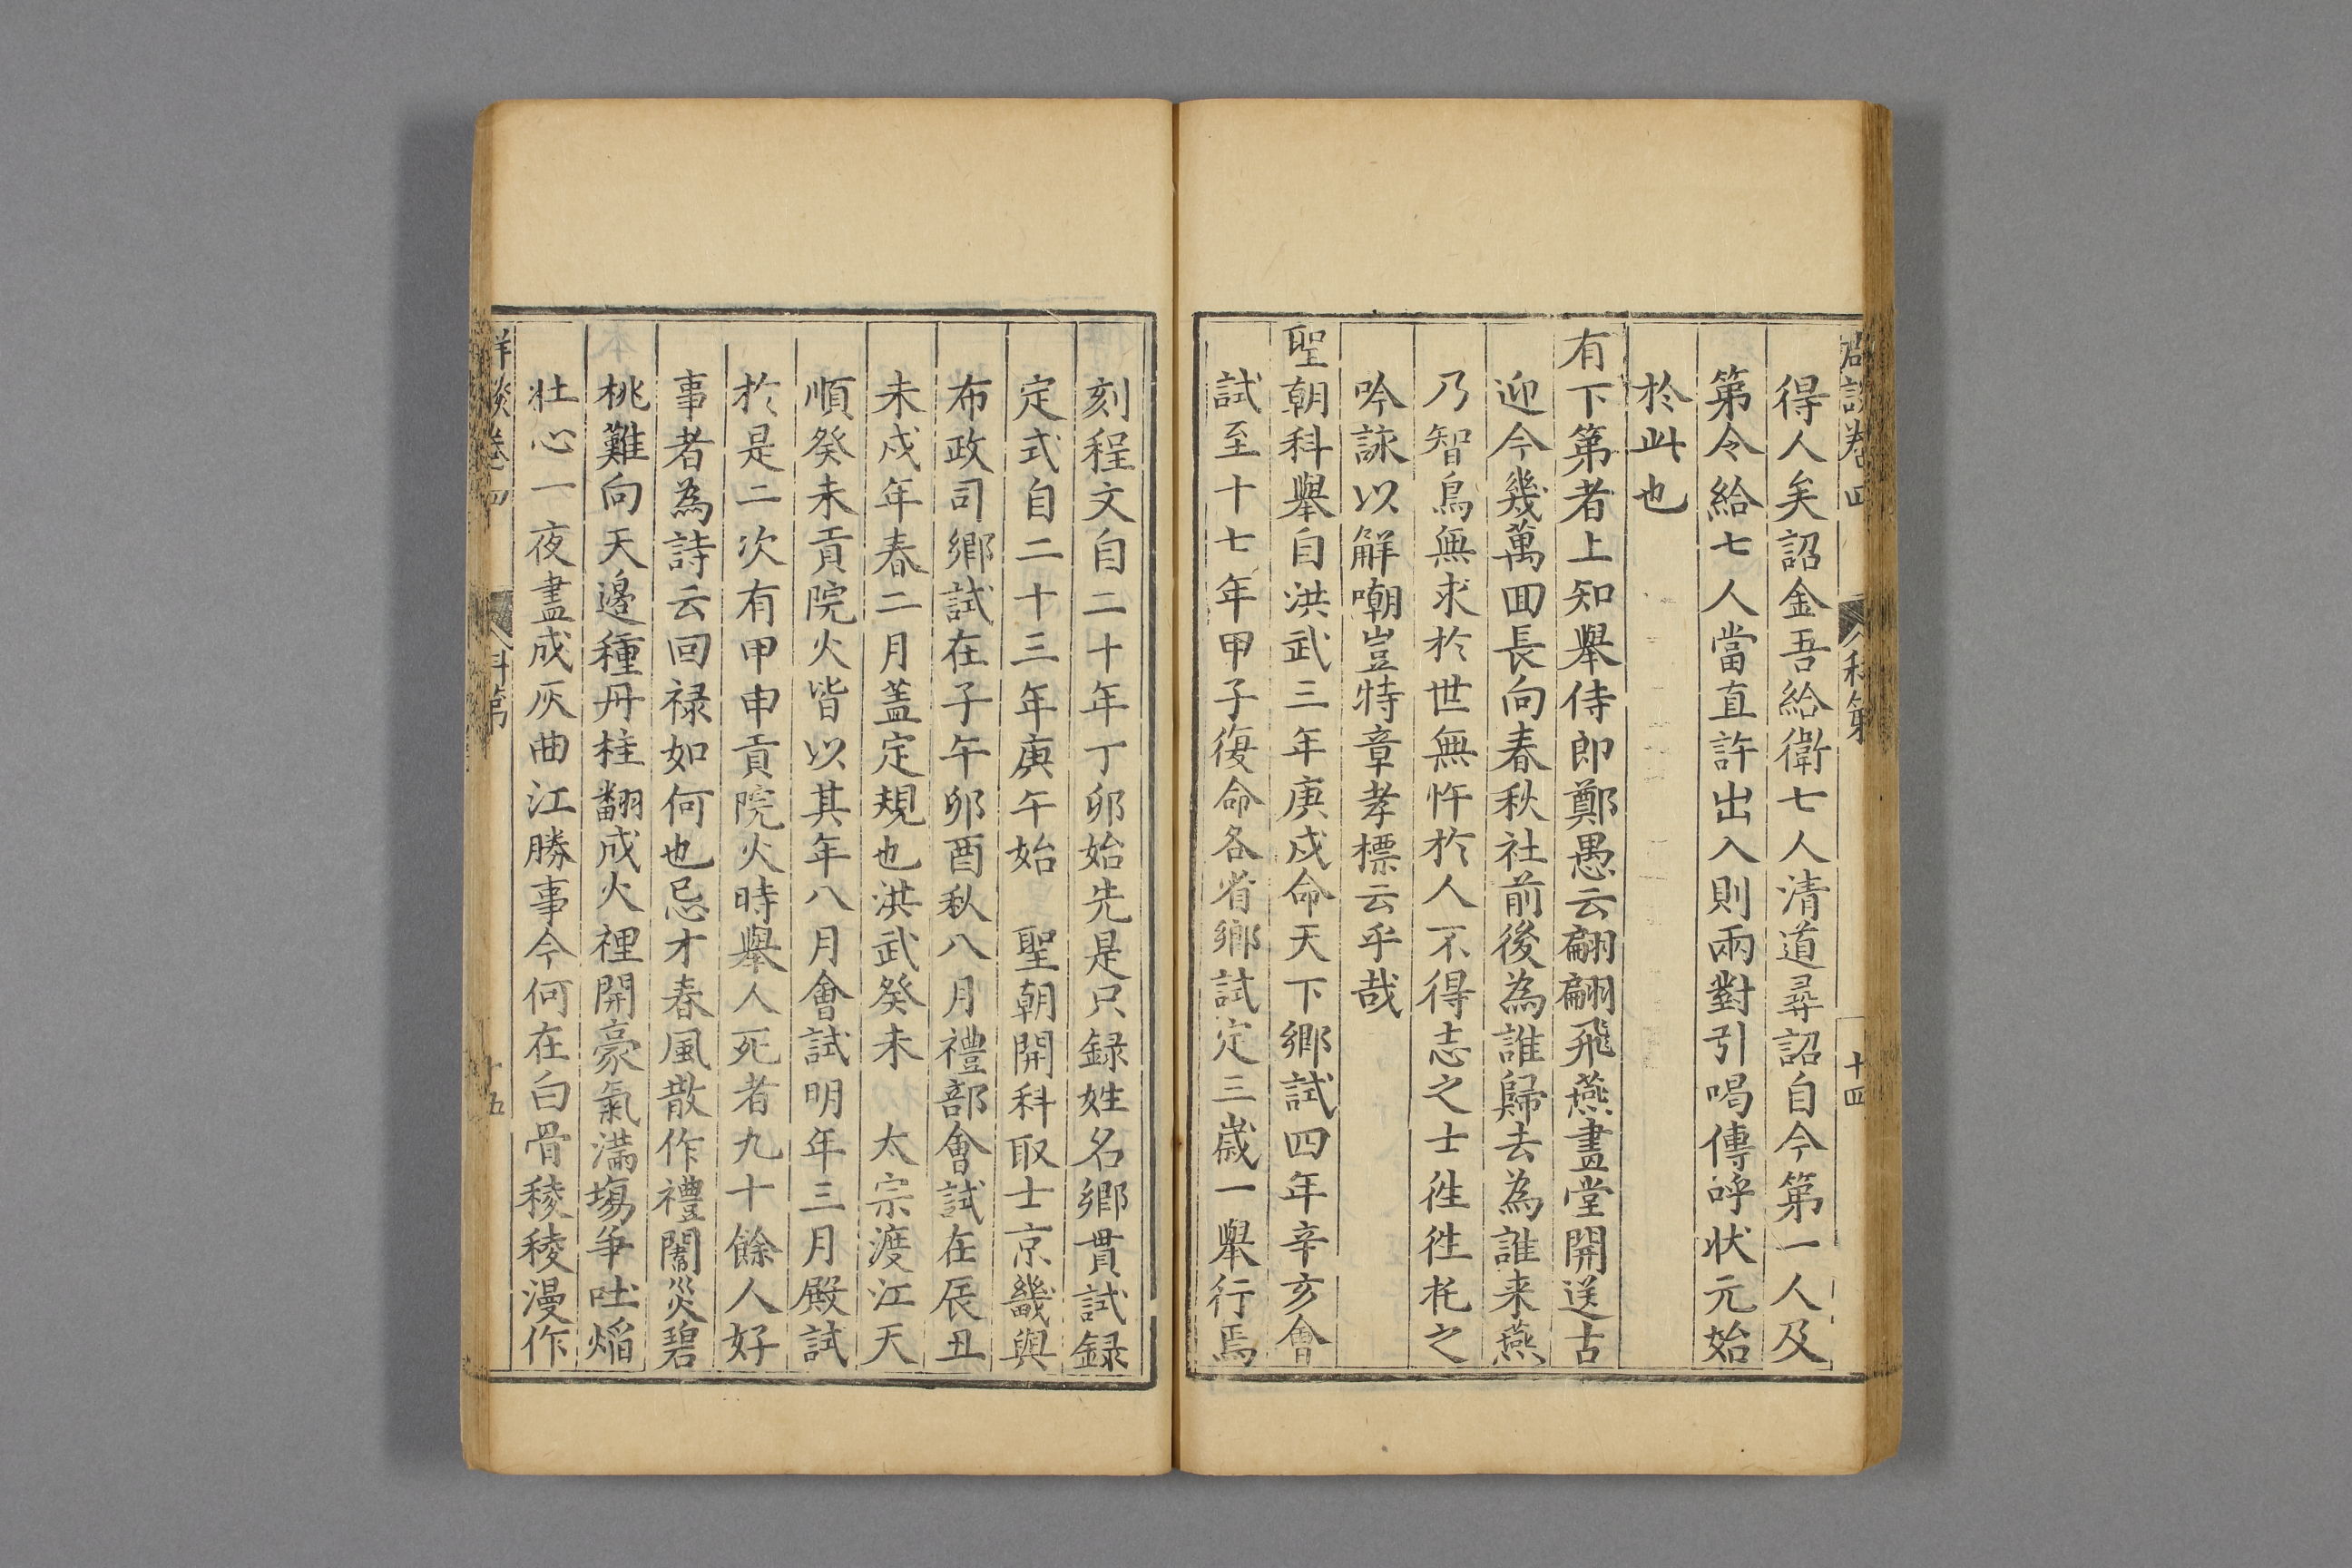 得人矣詔金吾給衛七人清道尋詔自今第一人及
第令給七人當直許出入則兩對引喝傳呼状元始
於此也
有下第者上知舉侍郎鄭愚云翩翩飛燕畫堂開送古
迎今幾萬回長向春秋社前後為誰歸去為誰来燕
乃智鳥無求於世無忤於人不得志之士徃徃托之
吟詠以解嘲豈特章孝標云乎哉
聖朝科舉自洪武三年庚戍命天下鄉試四年辛亥會
試至十七年甲子復命各省鄉試定三歲一舉行焉
刻程文自二十年丁卯始先是只録姓名鄉貫試録
定式自二十三年庚午始　聖朝開科取士京畿與
布政司鄉試在子午卯酉秋八月禮部會試在辰丑
未戍年春二月蓋定規也洪武癸未　太宗渡江天
順癸未貢院火皆以其年八月會試明年三月殿試
於是二次有甲申貢院火時舉人死者九十餘人好
事者為詩云回禄如何也忌才春風散作禮闈災碧
桃難向天邊種丹柱翻成火裡開豪氣滿塲争吐熖
壮心一夜盡成灰曲江勝事今何在白骨稜稜漫作